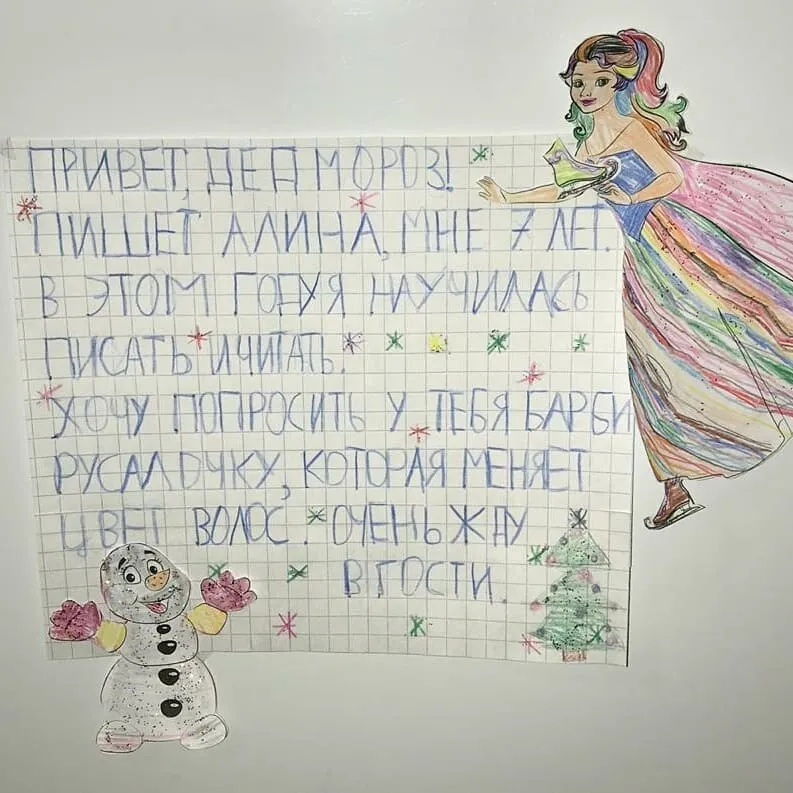 ПРИВЕТ, ДЕД МОРОЗ!
ПИШЕТ АЛИНА, МНЕ 7 ЛЕТ.
В ЭТОМ ГОДУ Я НАУЧИЛАСЬ
ПИСАТЬ И ЧИТАТЬ.
ХОЧУ ПОПРОСИТЬ У ТЕБЯ БАРБИ
РУСАЛОЧКУ, КОТОРАЯ МЕНЯЕТ
ЦВЕТ ВОЛОС. ОЧЕНЬ ЖДУ
В ГОСТИ.